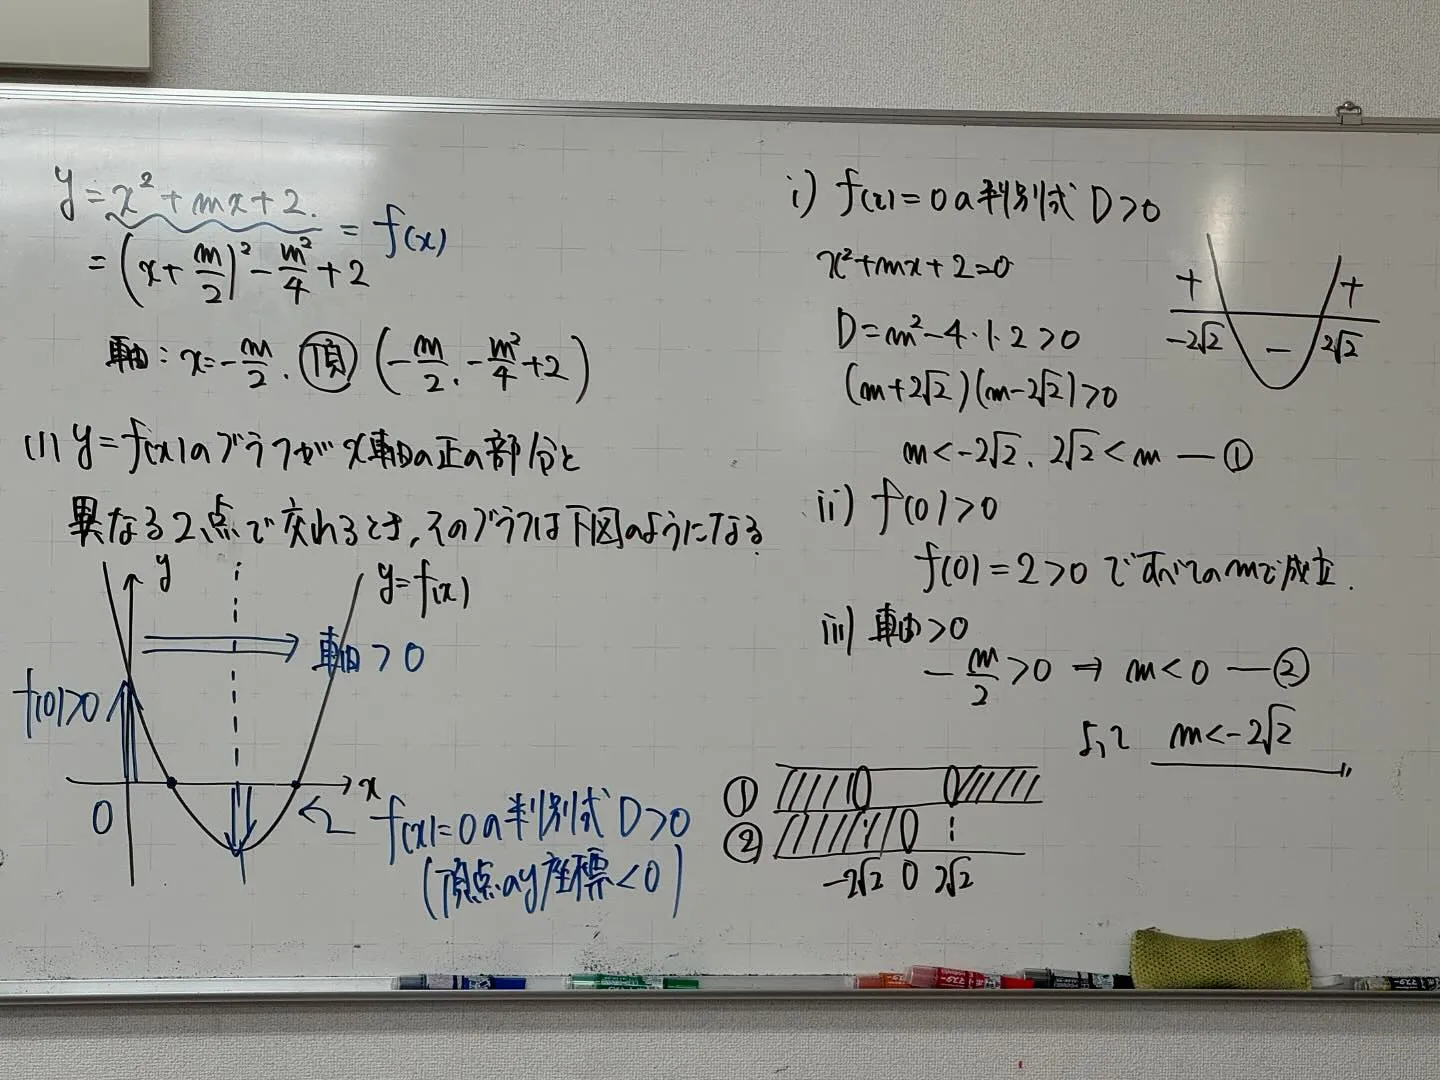 y=x²+mx+2. = f(x)
=(x+m/2)²-m²/4+2
軸:x=-m/2. 頂(-m/2.-m²/4+2)
(1) y=f(x)のグラフがx軸の正の部分と
異なる2点で交わるとき,そのグラフは下図のようになる
y
y=f(x)
軸>0
f(0)>0
x
0
f(x)=0の判別式D>0
(頂点のy座標<0)
i) f(x)=0の判別式D>0
x²+mx+2=0
D=m²-4・1・2>0
(m+2√2)(m-2√2)>0
m<-2√2、2√2<m ―①
+ +
-2√2 - 2√2
ii) f(0)>0
f(0)=2>0ですべてのmで成立.
iii) 軸>0
-m/2>0 ⇒ m<0 ―②
よって m<-2√2
①
②
-2√2 0 2√2